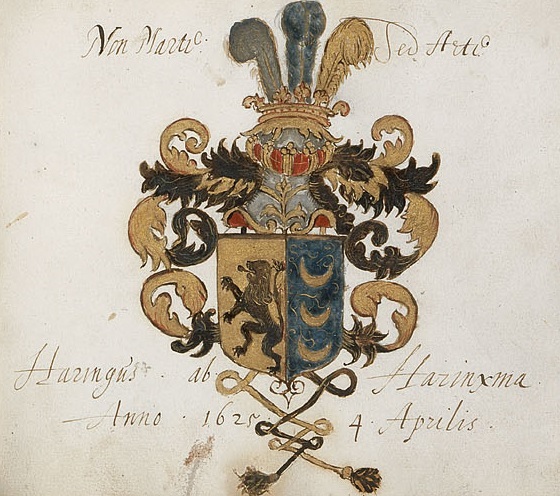 Non Marte Sed Arte
Haringus ab Harinxma
Anno 1625 4 Aprilis.